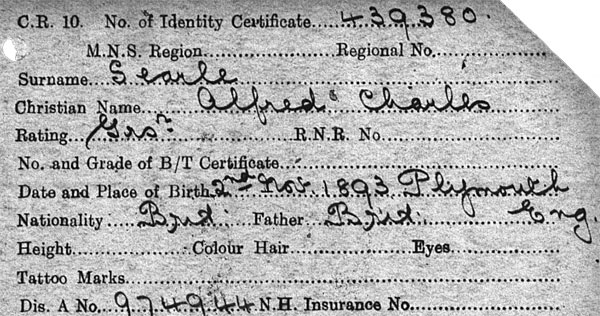 C.R. 10. No. of Identity Certificate 439380.
M.N.S. Region Regional No.
Surname Searle
Christian Name Alfred Charles
Rating Grsr R.N.R. No.
No. and Grade of B/T Certificate
Date and Place of Birth 2nd Nov. 1893 Plymouth
Nationality Brit. Father Brit. Eng.
Height Colour Hair Eyes
Tattoo Marks
Dis. A No. 974944 N.H. Insurance No.